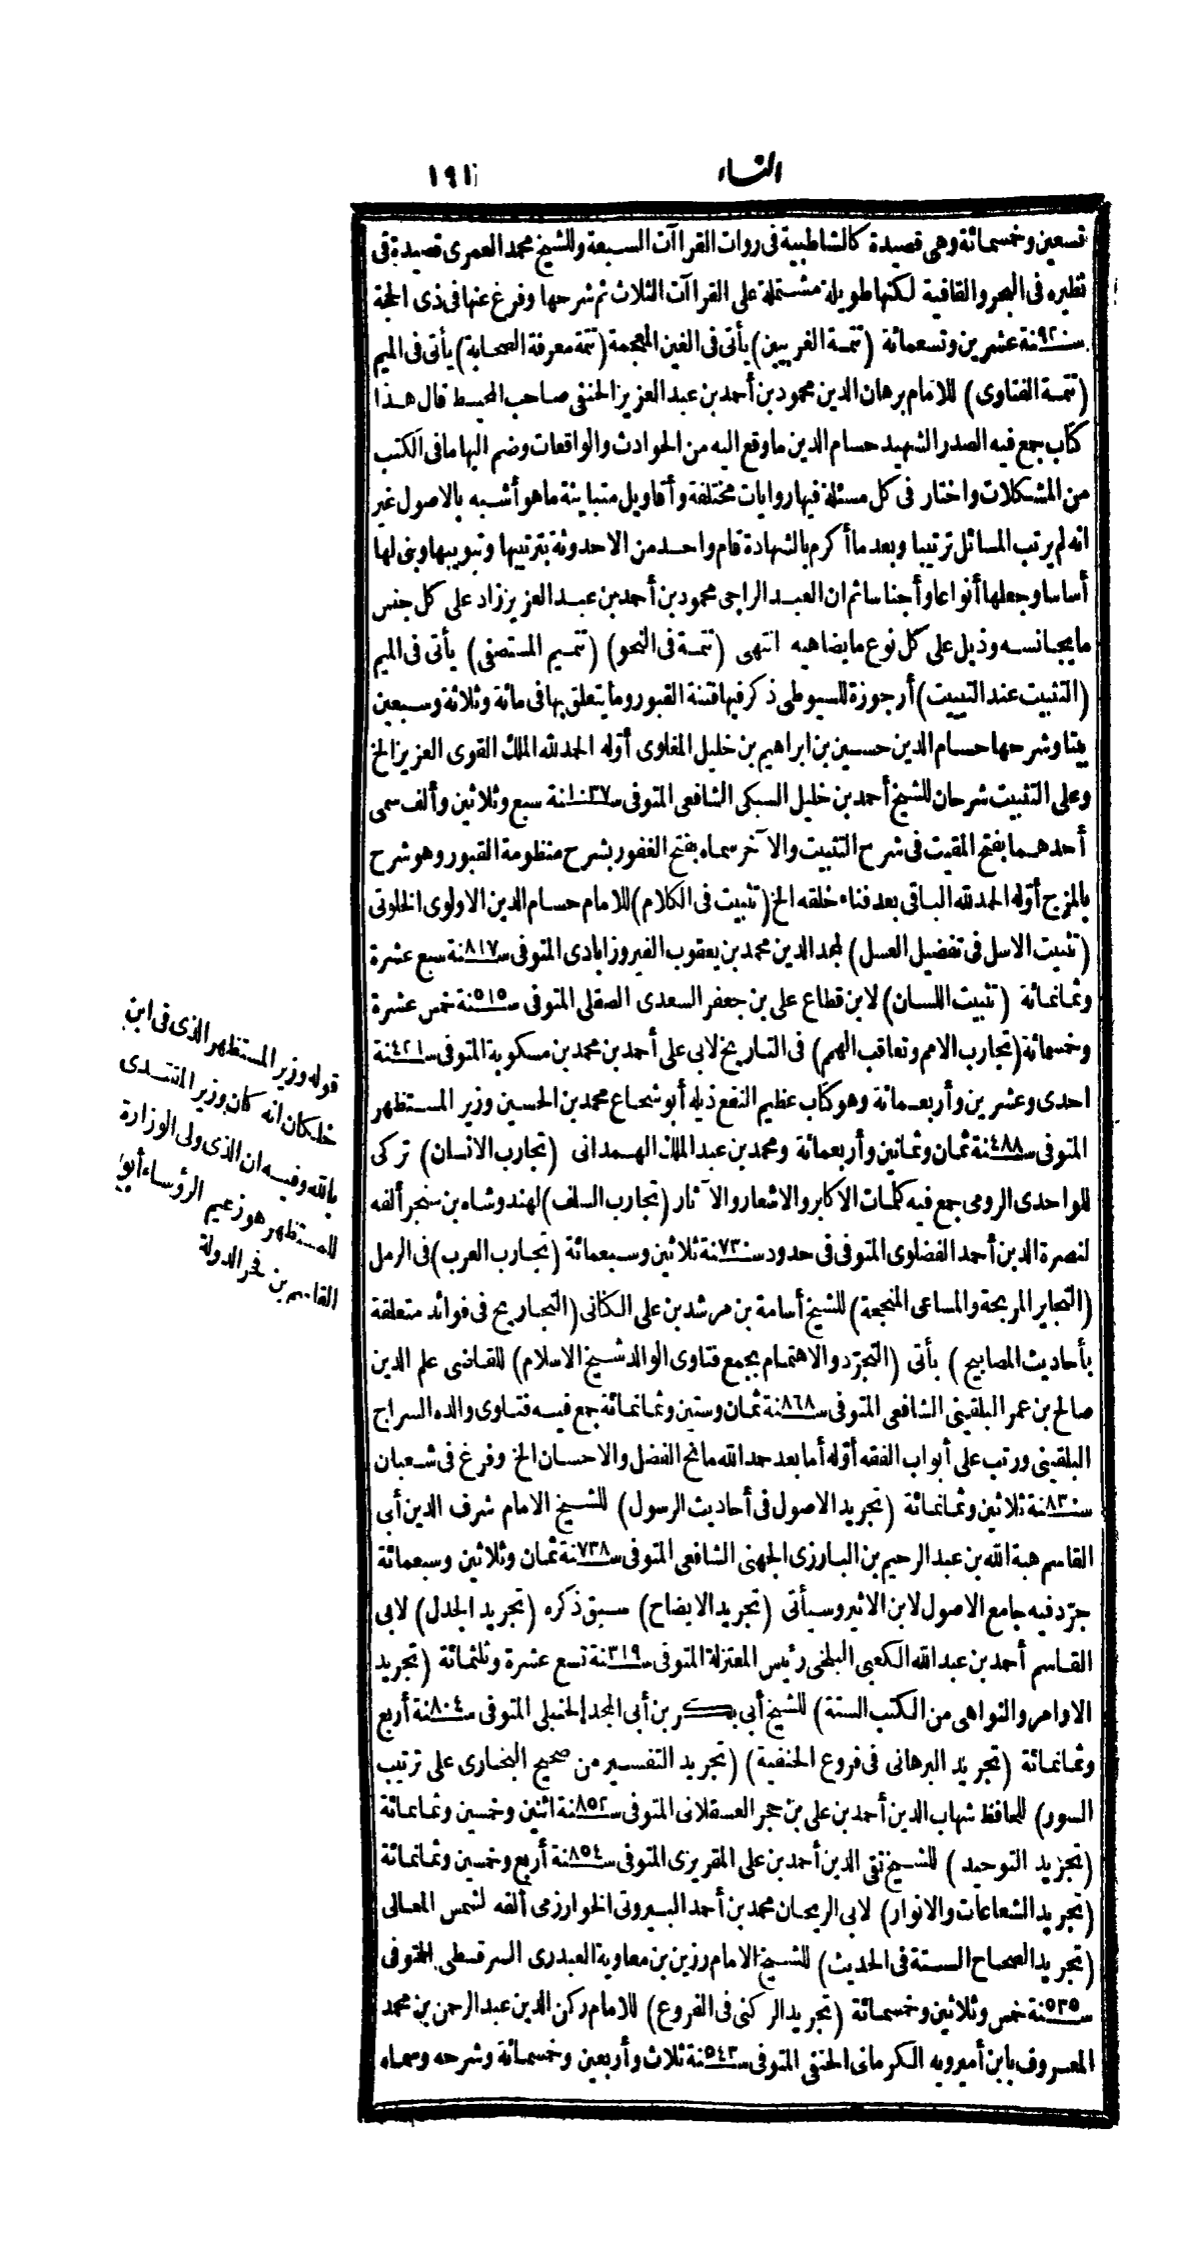 التاء
١٩١
تسعين وخمسمائة وهي قصيدة كالشاطبية فى روات القراآت السبعة وللشيخ محمد العمرى قصيدة فى
نظيره فى البحر والقافية لكنها طويلة مشتملة على القراآت الثلاث ثم شرحها وفرغ عنها فى ذى الحجة
سنة ٩٢٠ عشرين وتسعمائة (تتمة الغريبين) يأتى فى الغين المعجمة (تتمة معرفة الصحابة) يأتى فى الميم
(تتمة الفتاوى) للامام برهان الدين محمود بن أحمد بن عبد العزيز الحنفى صاحب المحيط قال هذا
كتاب جمع فيه الصدر الشهيد حسام الدين ما وقع اليه من الحوادث والواقعات وضم اليها ما فى الكتب
من المشكلات واختار فى كل مسئلة فيها روايات مختلفة وأقاويل متباينة ما هو أشبه بالاصول غير
انه لم يرتب المسائل ترتيبا وبعد ما أكرم بالشهادة قام واحد من الاحدوثة بترتيبها وتبويبها وبنى لها
أساسا وجعلها أنواعا وأجناسا ثم ان العبد الراجى محمود بن أحمد بن عبد العزيز زاد على كل جنس
ما يجانسه وذيل على كل نوع ما يضاهيه انتهى (تتمة فى النحو) (تتميم المستصفى) يأتى فى الميم
(التثبيت عند التبييت) أرجوزة للسيوطى ذكر فيها فتنة القبور وما يتعلق بها فى مائة وثلاثة وسبعين
بيتا وشرحها حسام الدين حسين بن ابراهيم بن خليل المغلوى أوّله الحمد لله الملك القوى العزيز الخ
وعلى التثبيت شرحان للشيخ أحمد بن خليل السبكى الشافعى المتوفى سنة ١٠٣٧ سبع وثلاثين وألف سمى
أحدهما بفتح المقيت فى شرح التثبيت والآخر سماه بفتح الغفور بشرح منظومة القبور وهو شرح
بالمزج أوّله الحمد لله الباقى بعد فناء خلقه الخ (تثبيت فى الكلام) للامام حسام الدين الاولوى الخلوتى
(تثبيت الاسل فى تفضيل العسل) لمجد الدين محمد بن يعقوب الفيروزابادى المتوفى سنة ٨١٧ سبع عشرة
وثمانمائة (تثبيت اللسان) لابن قطاع على بن جعفر السعدى الصقلى المتوفى سنة ٥١٥ خمس عشرة
وخمسمائة (تجارب الامم وتعاقب الهمم) فى التاريخ لابى على أحمد بن محمد بن مسكوية المتوفى سنة ٤٢١
احدى وعشرين وأربعمائة وهو كتاب عظيم النفع ذيله أبو شجاع محمد بن الحسين وزير المستظهر
المتوفى سنة ٤٨٨ ثمان وثمانين وأربعمائة ومحمد بن عبد الملك الهمدانى (تجارب الانسان) تركى
للواحدى الرومى جمع فيه كلمات الاكابر والاشعار والآثار (تجارب السلف) لهندوشاه بن سنجر ألفه
لنصرة الدين أحمد الفضلوى المتوفى فى حدود سنة ٧٣٠ ثلاثين وسبعمائة (تجارب العرب) فى الرمل
(التجاير المربحة والمساعى المنجحة) للشيخ أسامة بن مرشد بن على الكنانى (التجاريح فى فوائد متعلقة
بأحاديث المصابيح) يأتى (التجرّد والاهتمام بجمع فتاوى الوالد شيخ الاسلام) للقاضى علم الدين
صالح بن عمر البلقينى الشافعى المتوفى سنة ٨٦٨ ثمان وستين وثمانمائة جمع فيه فتاوى والده السراج
البلقينى ورتب على أبواب الفقه أوّله أما بعد حمد الله مانح الفضل والاحسان الخ وفرغ فى شعبان
سنة ٨٣٠ ثلاثين وثمانمائة (تجريد الاصول فى أحاديث الرسول) للشيخ الامام شرف الدين أبى
القاسم هبة الله بن عبد الرحيم بن البارزى الجهنى الشافعى المتوفى سنة ٧٣٨ ثمان وثلاثين وسبعمائة
جرّد فيه جامع الاصول لابن الاثير وسيأتى (تجريد الايضاح) سبق ذكره (تجريد الجدل) لابى
القاسم أحمد بن عبد الله الكعبى البلخى رئيس المعتزلة المتوفى سنة ٣١٩ تسع عشرة وثلثمائة (تجريد
الاوامر والنواهى من الكتب الستة) للشيخ أبى بكر بن أبى المجد الحنبلى المتوفى سنة ٨٠٤ أربع
وثمانمائة (تجريد البرهانى فى فروع الحنفية) (تجريد التفسير من صحيح البخارى على ترتيب
السور) للحافظ شهاب الدين أحمد بن على بن حجر العسقلانى المتوفى سنة ٨٥٢ اثنين وخمسين وثمانمائة
(تجريد التوحيد) للشيخ تقى الدين أحمد بن على المقريزى المتوفى سنة ٨٥٤ أربع وخمسين وثمانمائة
(تجريد الشعاعات والانوار) لابى الريحان محمد بن أحمد البيروتى الخوارزمى ألفه لشمس المعالى
(تجريد الصحاح الستة فى الحديث) للشيخ الامام رزين بن معاوية العبدرى السرقسطى المتوفى
سنة ٥٣٥ خمس وثلاثين وخمسمائة (تجريد الركنى فى الفروع) للامام ركن الدين عبد الرحمن بن محمد
المعروف بابن أميرويه الكرمانى الحنفى المتوفى سنة ٥٤٣ ثلاث وأربعين وخمسمائة وشرحه وسماه
قوله وزير المستظهر الذى فى ابن
خلكان انه كان وزير المقتدى
بالله وفيه ان الذى ولى الوزارة
للمستظهر هو زعيم الرؤساء أبو
القاسم بن فخر الدولة